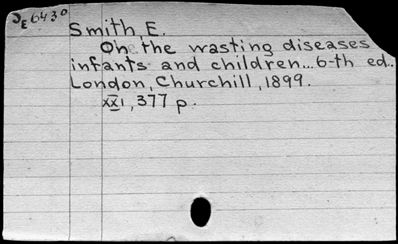 JE6430
Smith, E.
On the wasting diseases
infants and children...6-th ed..
London, Churchill, 1899.
XXI, 377 p.